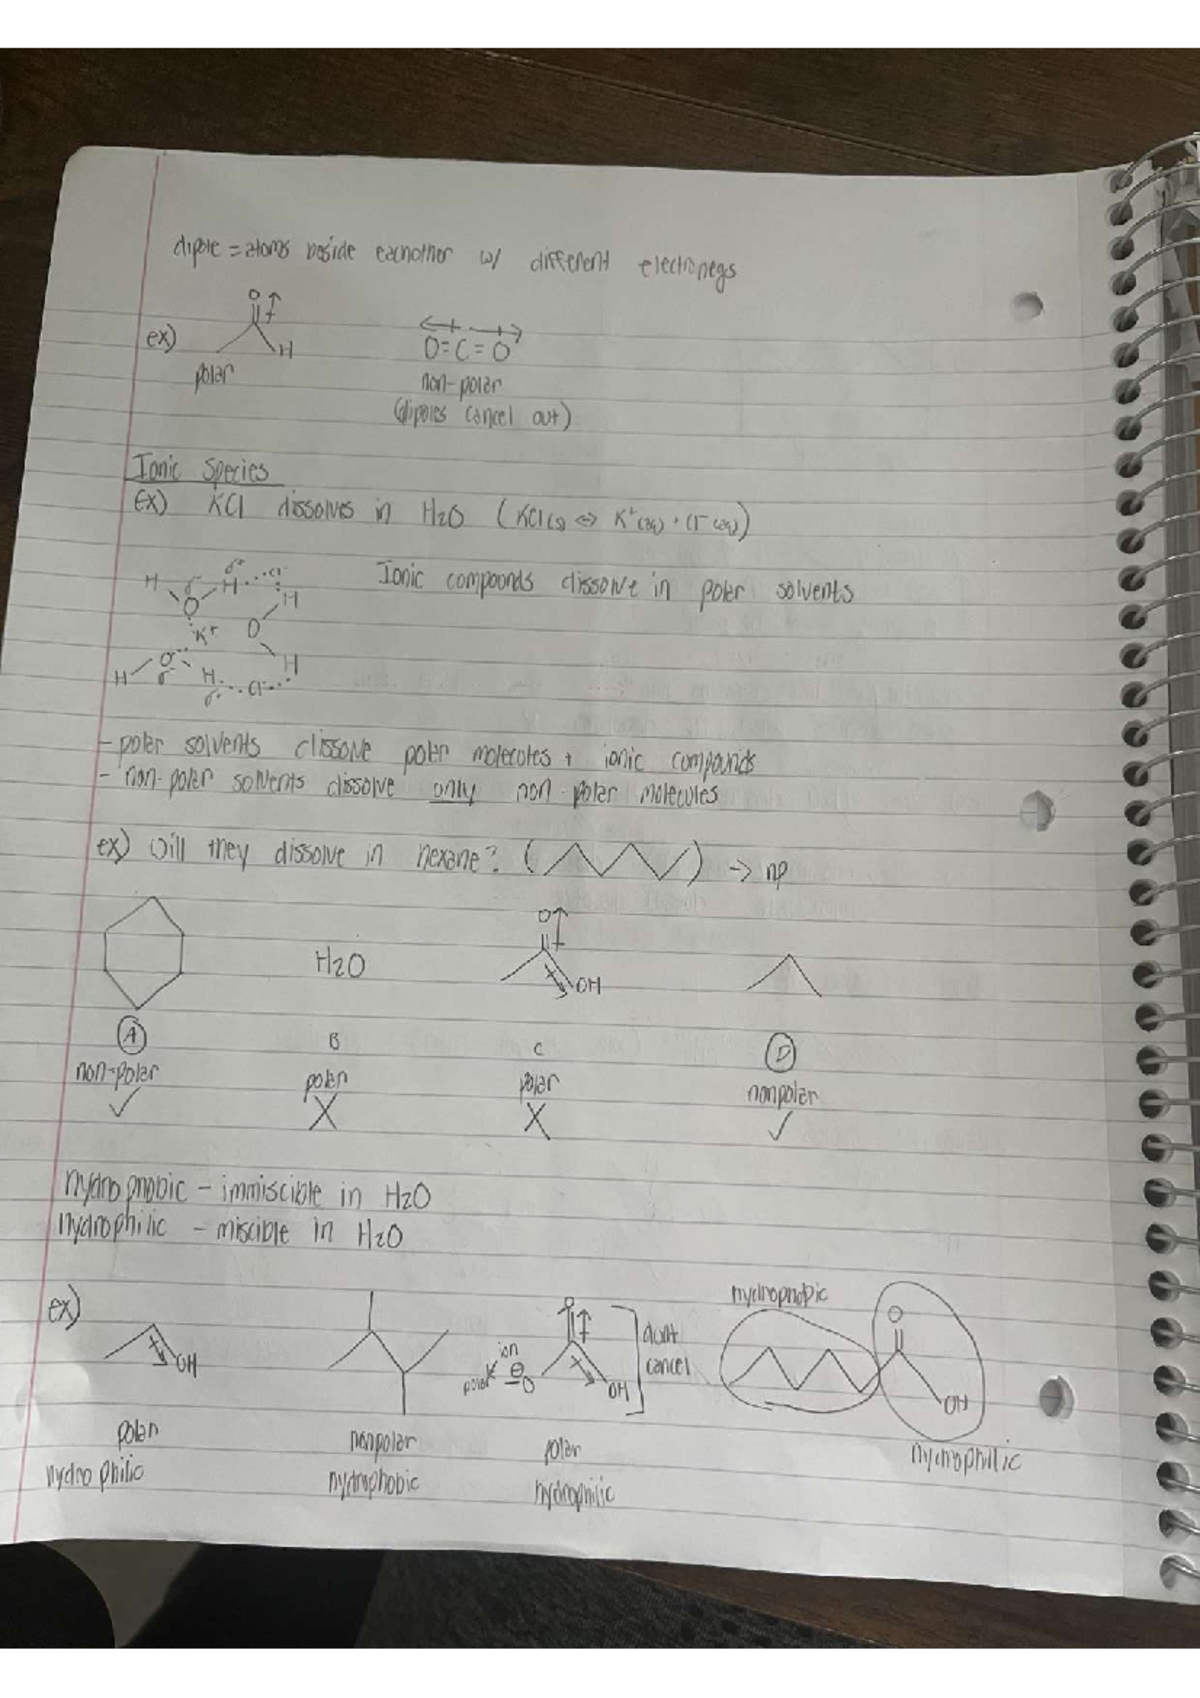 dipole = atoms beside eachother w/ different electronegs
O
ex) H O=C=O
polar non-polar
(dipoles cancel out)
Ionic Species
Ex) KCl dissolves in H2O (KCl(s) ⇔ K+(aq) + Cl-(aq))
H δ- δ+ H Cl- Ionic compounds dissolve in polar solvents
O H
K+ O
O H
H δ- H δ+ Cl-
- polar solvents dissolve polar molecules + ionic compounds
- non-polar solvents dissolve only non-polar molecules
ex) Will they dissolve in hexane? ( ) → np
O
H2O OH
A B C D
non-polar polar polar nonpolar
✓ X X ✓
hydrophobic - immiscible in H2O
hydrophilic - miscible in H2O
ex) hydrophobic
OH O ion polar ⊖O OH don't cancel O OH
polar nonpolar polar hydrophilic
hydrophilic hydrophobic hydrophilic